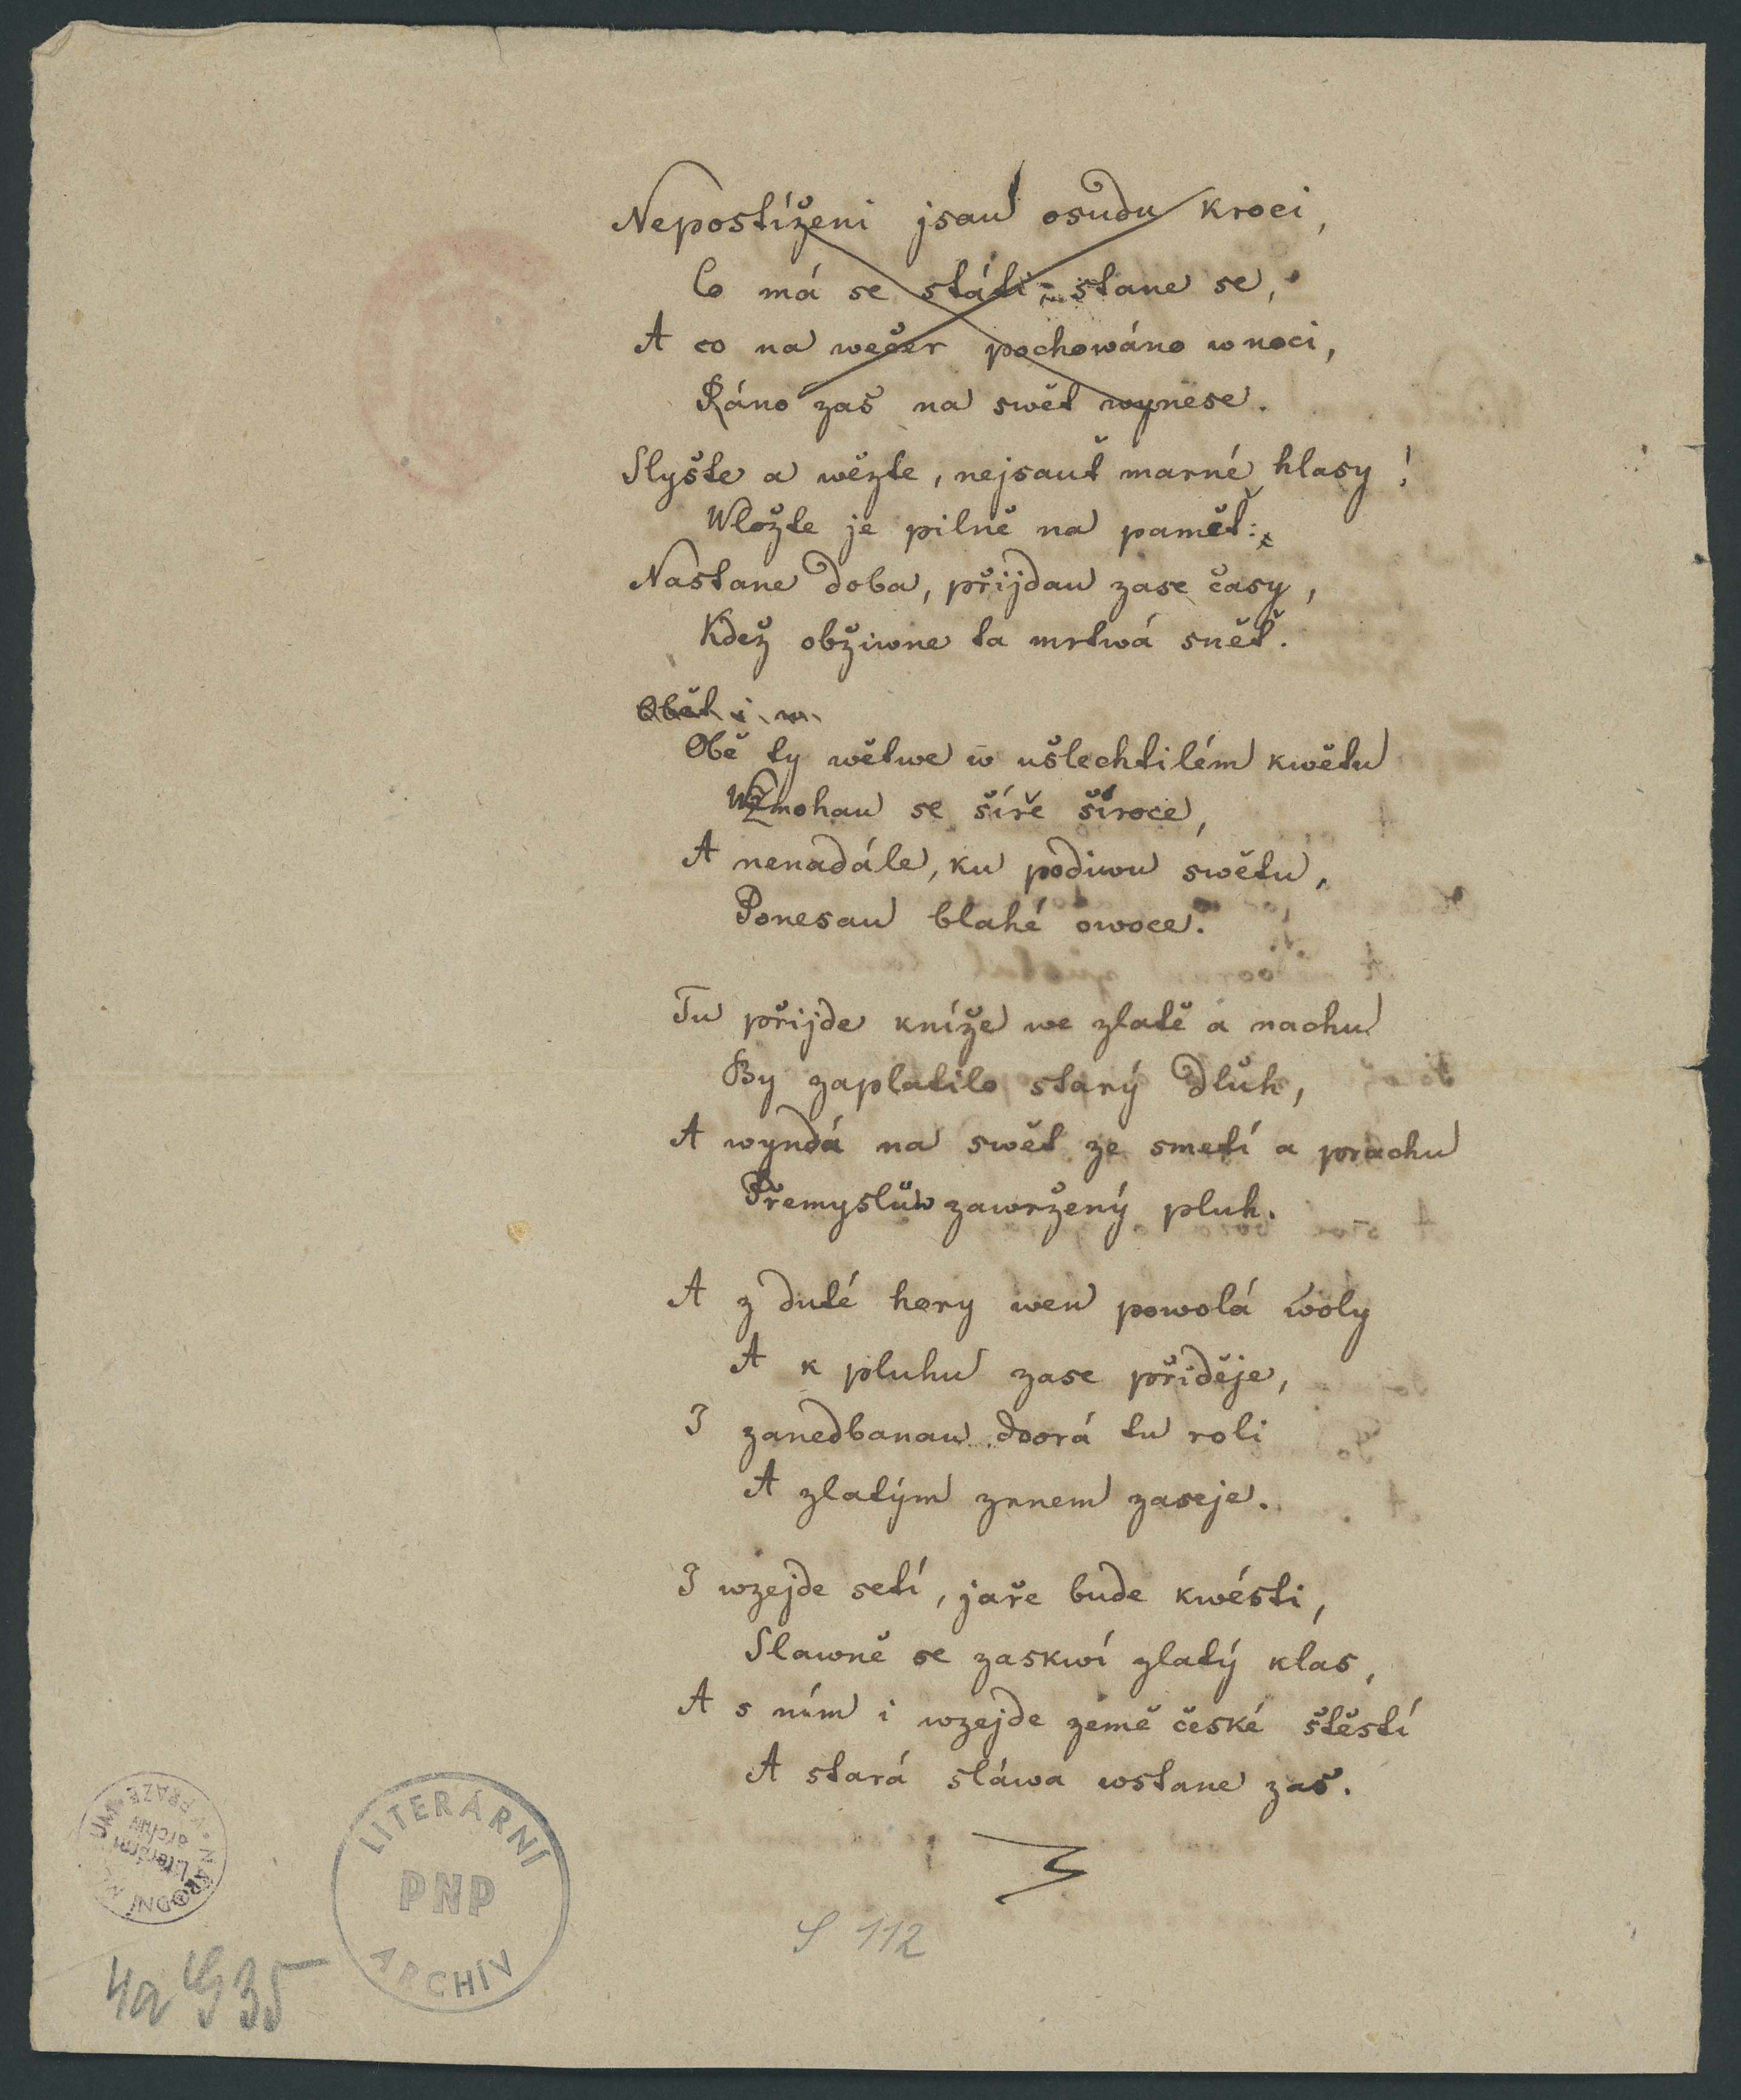 Nepostíženi jsau osudu kroci,
Co má se státi - stane se,
A co na wečer pochowáno w noci,
Ráno zaš na swět wynese.
Slyšte a wězte, nejsauť marné hlasy!
Wložte je pilně na paměť:
Nastane doba, přijdau zase časy,
Kdež obžiwne ta mrtwá sněť.
Obě ty wětwe w ušlechtilém kwětu
Wzmohau se šíře široce,
A nenadále, ku podiwu swětu,
Ponesau blahé owoce.
Tu přijde kníže we zlatě a nachu
By zaplatilo starý dluh,
A wyndá na swět ze smetí a prachu
Přemyslůw zawržený pluh.
A z duté hory wen powolá woly
A k pluhu zase příděje,
I zanedbanau doorá tu roli
A zlatým zrnem zaseje.
I wzejde setí, jaře bude kwésti,
Slawně se zaskwí zlatý klas,
A s ním i wzejde země české štěstí
A stará sláwa wstane zaš.
S 112
LITERÁRNÍ
PNP
ARCHIV
NÁRODNÍ
V PRAZE
Literární
archiv
35